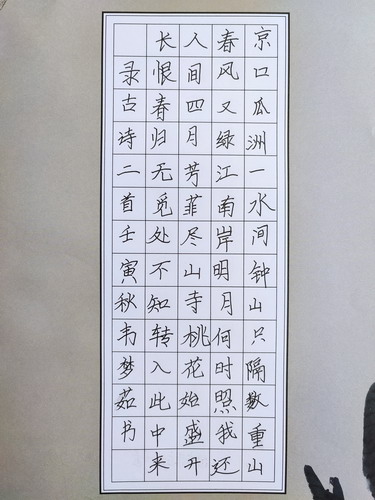 京口瓜洲一水间钟山只隔数重山
春风又绿江南岸明月何时照我还
人间四月芳菲尽山寺桃花始盛开
长恨春归无觅处不知转入此中来
录古诗二首壬寅秋韦梦茹书